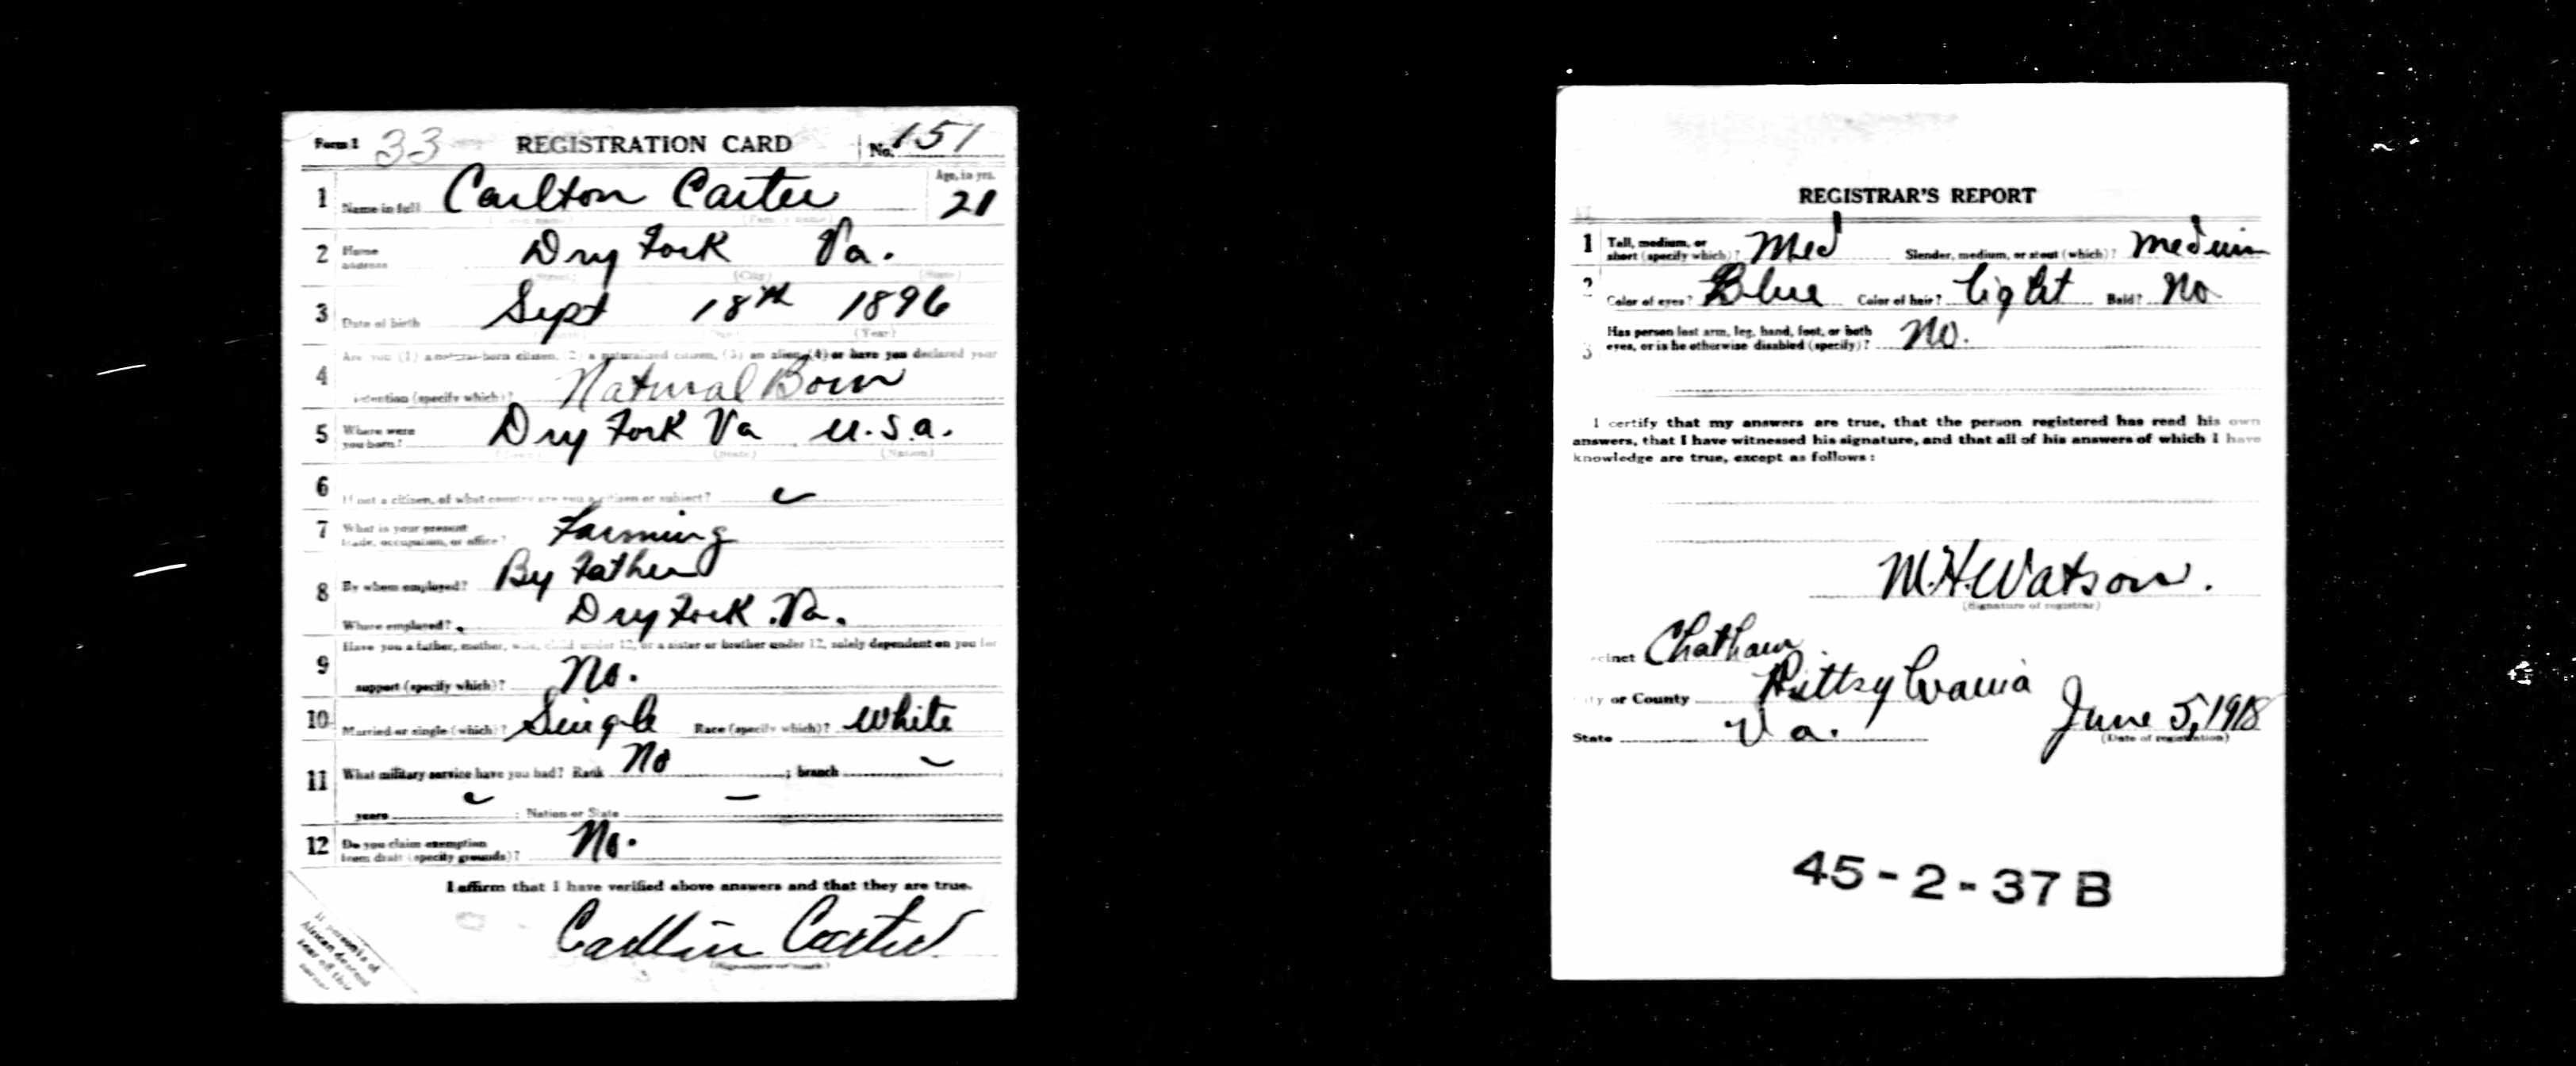 Form 1 33 REGISTRATION CARD No. 151
1 Name in full Carlton Carter Age, in yrs. 21
2 Home address Dry Fork Va.
(Street) (City) (State)
3 Date of birth Sept 18th 1896
(Year)
4 Are you (1) a natural-born citizen, (2) a naturalized citizen, (3) an alien, (4) or have you declared your
intention (specify which)? Natural Born
5 Where were you born? Dry Fork Va U.S.a.
(Town) (State) (Nation)
6 If not a citizen, of what country are you a citizen or subject?
7 What is your present trade, occupation, or office? Farming
8 By whom employed? By Father
Where employed? Dry Fork. Va.
9 Have you a father, mother, wife, child under 12, or a sister or brother under 12, solely dependent on you for
support (specify which)? No.
10 Married or single (which)? Single Race (specify which)? White
11 What military service have you had? Rank No ; branch –
years ; Nation or State –
12 Do you claim exemption from draft (specify grounds)? No.
I affirm that I have verified above answers and that they are true.
Carlton Carter
(Signature or mark)
If person is of
African descent
tear off this
corner
REGISTRAR'S REPORT
1 Tall, medium, or short (specify which)? Med Slender, medium, or stout (which)? Medium
2 Color of eyes? Blue Color of hair? light Bald? No
3 Has person lost arm, leg, hand, foot, or both
eyes, or is he otherwise disabled (specify)? No.
I certify that my answers are true, that the person registered has read his own
answers, that I have witnessed his signature, and that all of his answers of which I have
knowledge are true, except as follows:
M.H. Watson.
(Signature of registrar)
cinct Chatham
ty or County Pittsylvania
State Va. June 5, 1918
(Date of registration)
45-2-37 B